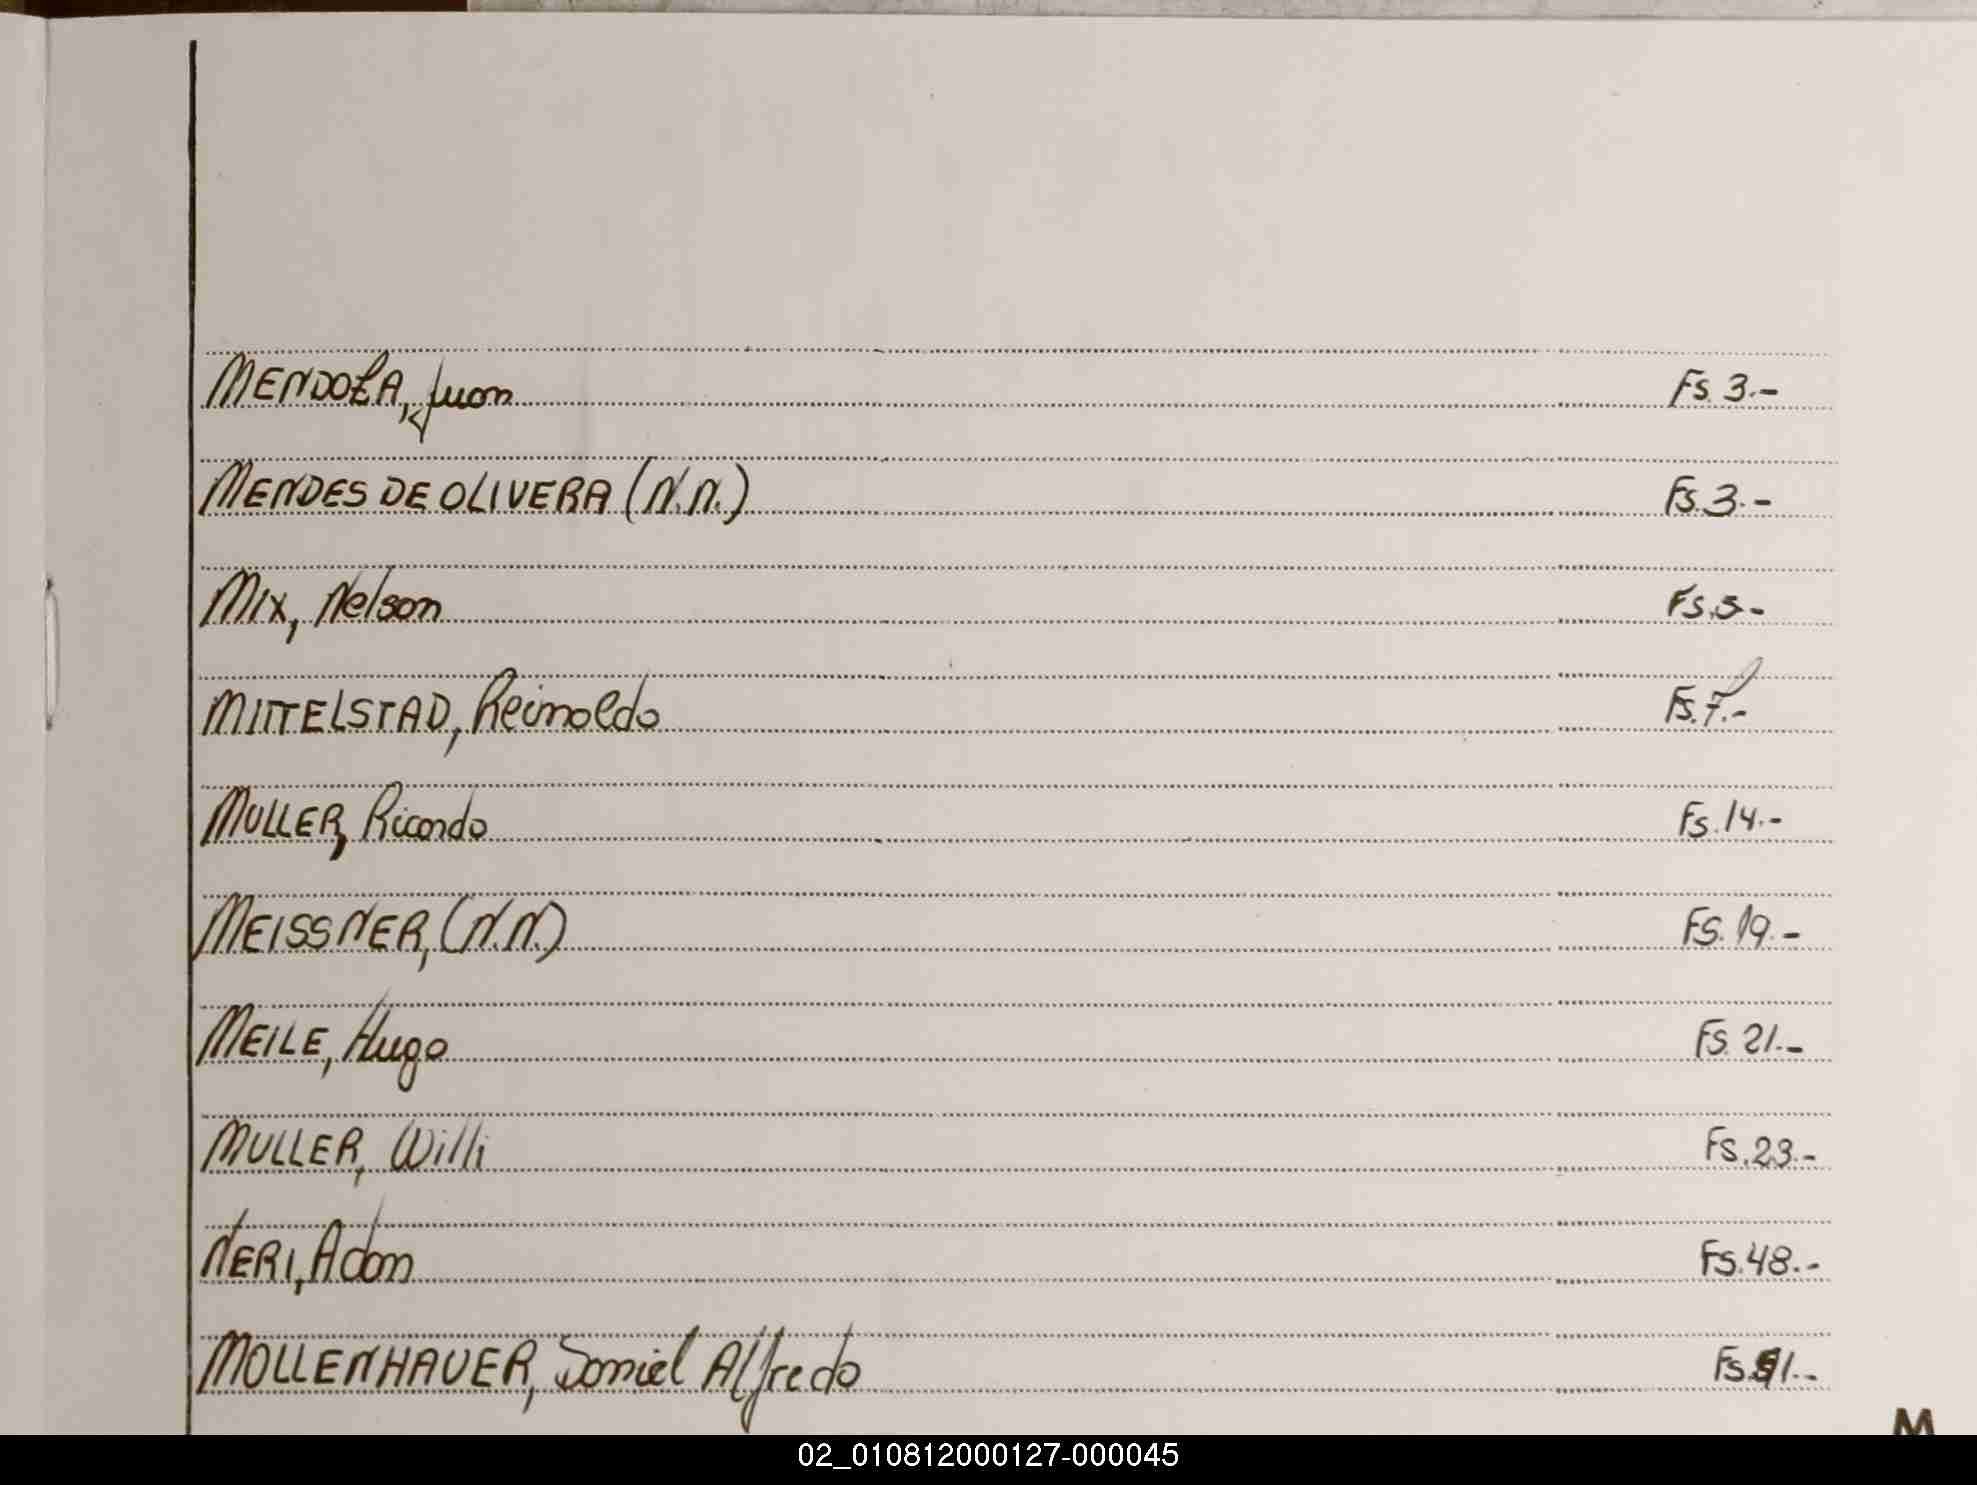 MENDOZA, Juan Fs. 3.-
MENDES DE OLIVERA (N.N.) Fs. 3.-
MIX, Nelson Fs. 5-
MITTELSTAD, Reinoldo Fs. 7.-
MULLER, Ricardo Fs. 14.-
MEISSNER, (N.N.) Fs. 19.-
MEILE, Hugo Fs. 21.-
MULLER, Willi Fs. 23.-
NERI, Adan Fs. 48.-
MOLLENHAUER, Daniel Alfredo Fs.
M
02_010812000127-000045